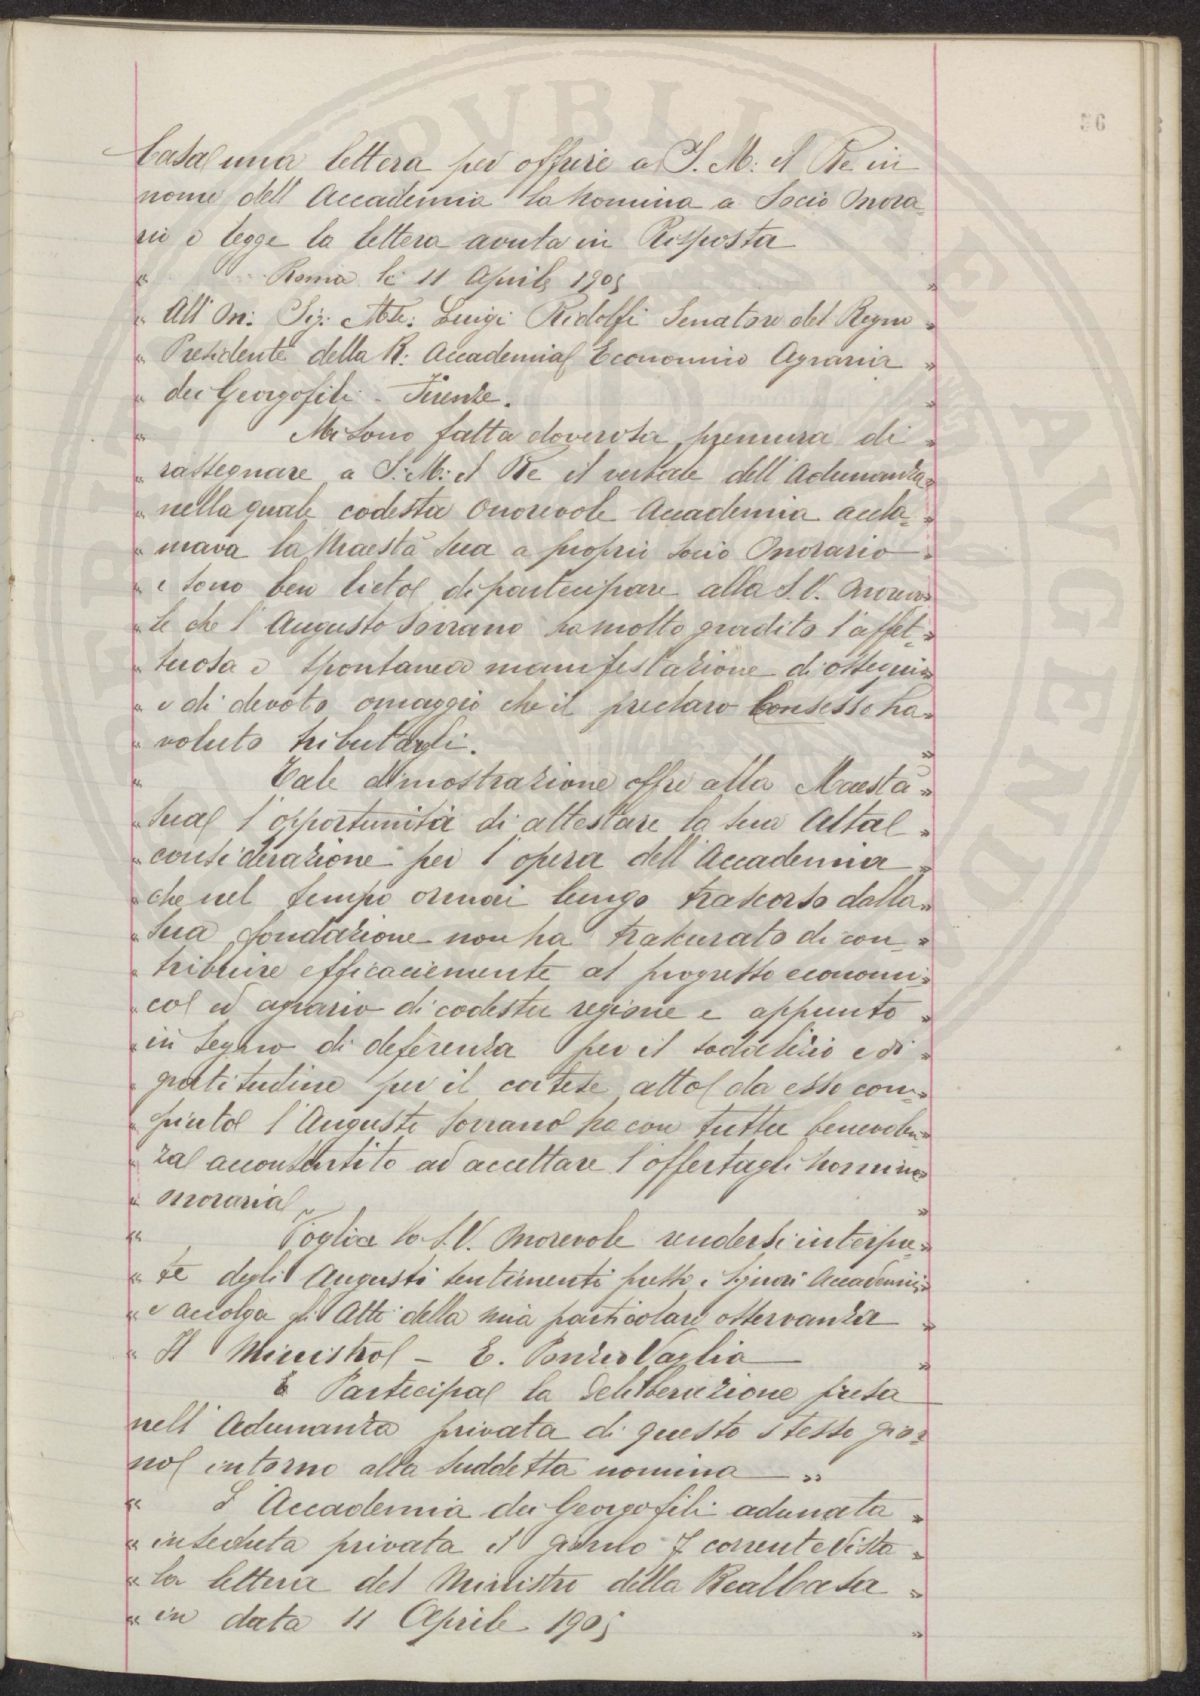 56
Casa una lettera per offrire a S. M. il Re in
nome dell' Accademia la nomina a Socio Onora-
rio e legge la lettera avuta in Risposta
" Roma li 11 Aprile 1905 "
" All' On: Sig: Mse: Luigi Ridolfi Senatore del Regno "
" Presidente della R: Accademia Economico Agraria "
" dei Georgofili - Firenze. "
" Mi sono fatta doverosa premura di "
" rassegnare a S. M. il Re il verbale dell' Adunanza "
" nella quale codesta Onorevole Accademia accla- "
" mava la Maestà Sua a proprio socio Onorario "
" e sono ben lieto di partecipare alla S. V. Onorevo "
" le che l' Augusto Sovrano ha molto gradito l' affet- "
" tuosa e spontanea manifestazione di ossequio "
" e di devoto omaggio che il preclaro Consesso ha "
" voluto tributargli. "
" Tale dimostrazione offre alla Maestà "
" Sua l' opportunità di attestare la Sua Alta "
" considerazione per l' opera dell' Accademia "
" che nel tempo ormai lungo trascorso dalla "
" sua fondazione non ha trascurato di con- "
" tribuire efficacemente al progresso economi- "
" co ed agrario di codesta regione e appunto "
" in segno di deferenza per il sodalizio e di "
" gratitudine per il cortese atto da esso com- "
" piuto l' Augusto Sovrano ha con tutta benevolen "
" za acconsentito ad accettare l' offertagli nomina "
" onoraria "
" Voglia la S. V. Onorevole rendersi interpre- "
" te degli Augusti sentimenti presso i Signori Accademici "
" e accolga gli Atti della mia particolare osservanza "
" Il Ministro - E. Ponzio Vaglia "
E Partecipa la deliberazione presa
nell' Adunanza privata di questo stesso gior-
no intorno alla suddetta nomina "
" L' Accademia dei Georgofili adunata "
" in seduta privata il giorno 7 corrente Vista "
" la lettera del Ministro della Real Casa "
" in data 11 Aprile 1905 "